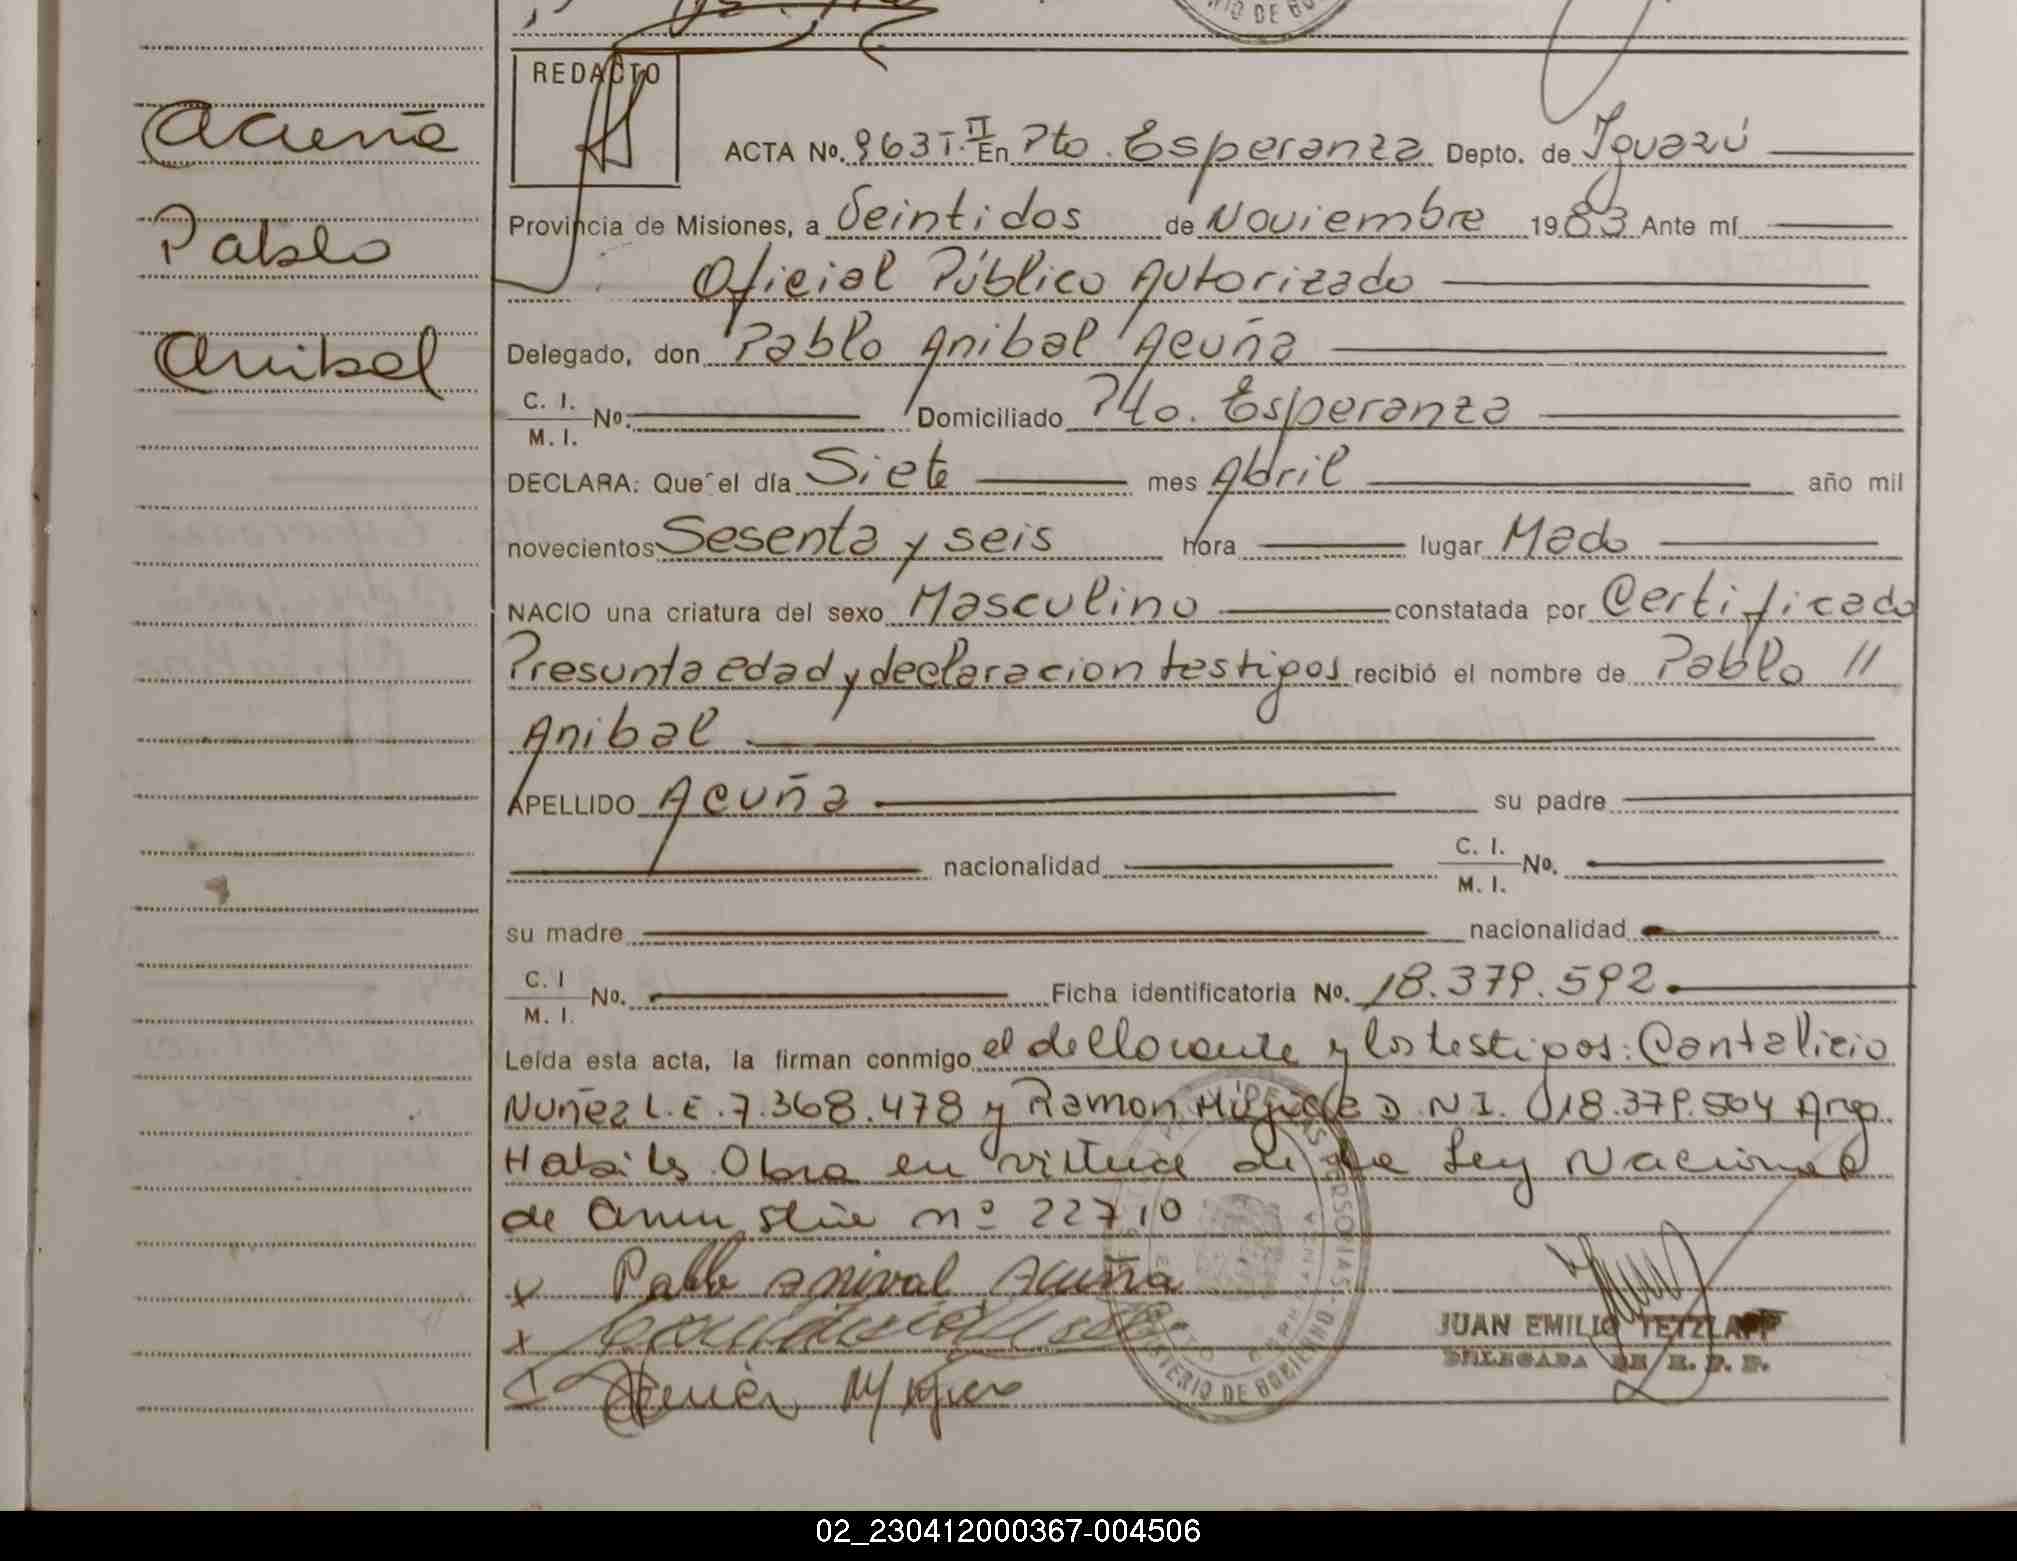 RIO DE BO
REDACTO
Acuña
ACTA Nº. 963 T. II En Pto. Esperanza Depto. de Iguazú
Pablo
Provincia de Misiones, a Veintidos de Noviembre 1983 Ante mí
Oficial Público Autorizado
Anibal
Delegado, don Pablo Anibal Acuña
C. I. M. I. Nº. Domiciliado Pto. Esperanza
DECLARA: Que el día Siete mes Abril año mil
novecientos Sesenta y seis hora lugar Mado
NACIO una criatura del sexo Masculino constatada por Certificado
Presunta edad y declaracion testigos recibió el nombre de Pablo //
Anibal
APELLIDO Acuña su padre
nacionalidad C. I. M. I. Nº.
su madre nacionalidad
C. I M. I. Nº. Ficha identificatoria Nº. 18.379.592
Leída esta acta, la firman conmigo el declarante y los testigos: Cantalicio
Nuñez L.E. 7.368.478 y Ramon D.N.I. 18.379.504 Arg.
Habiles Obra en virtud de la Ley Nacional
de Amnistia nº 22710
x Pablo Anival Acuña
x
JUAN EMILIO TETZLAFF
DELEGADA DE R. P. P.
MINISTERIO DE GOBIERNO
02_230412000367-004506